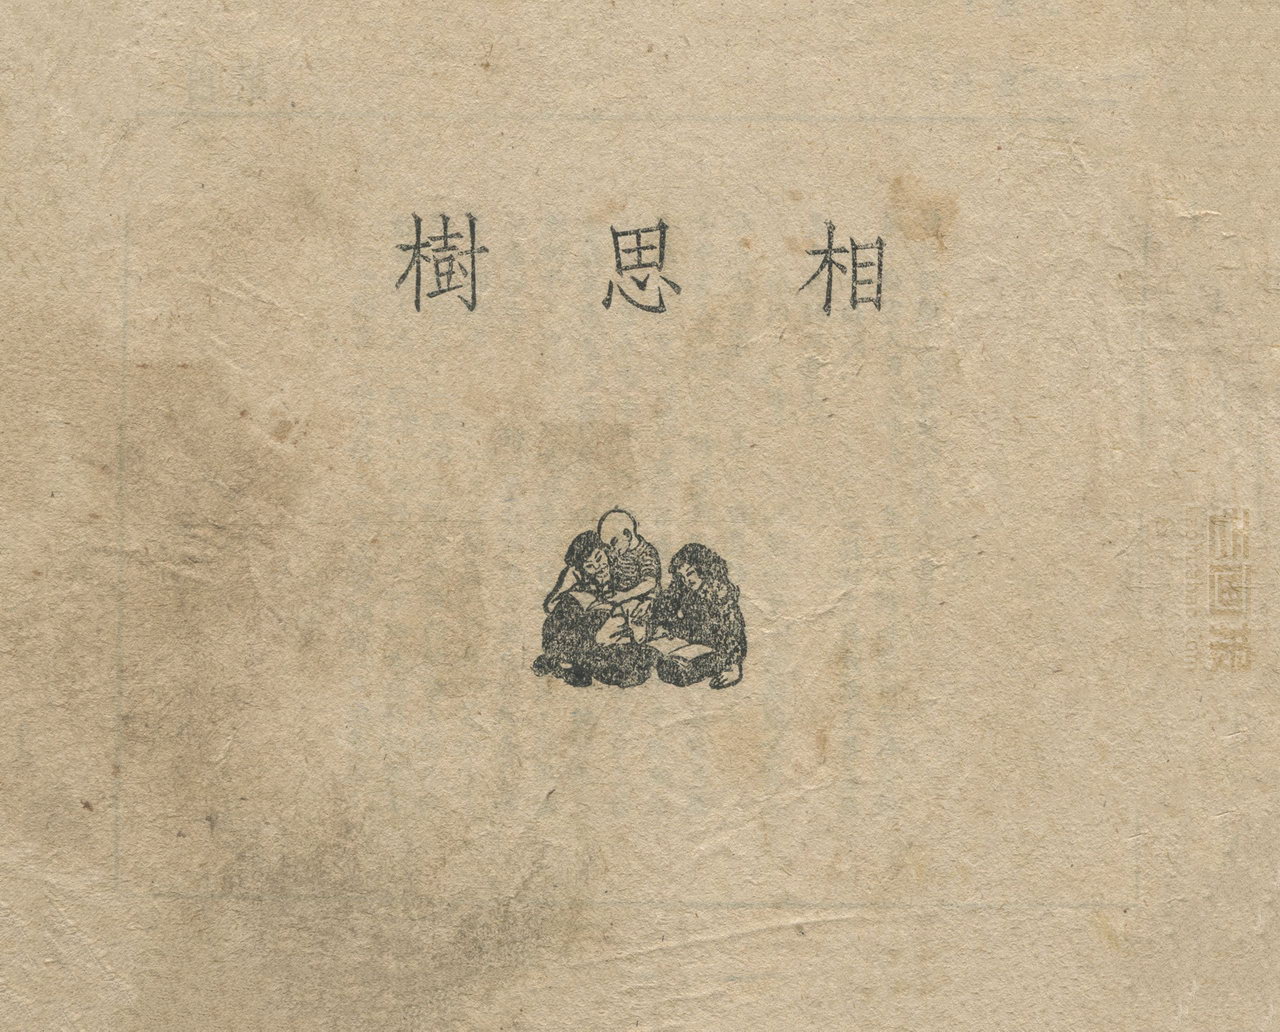 相思樹